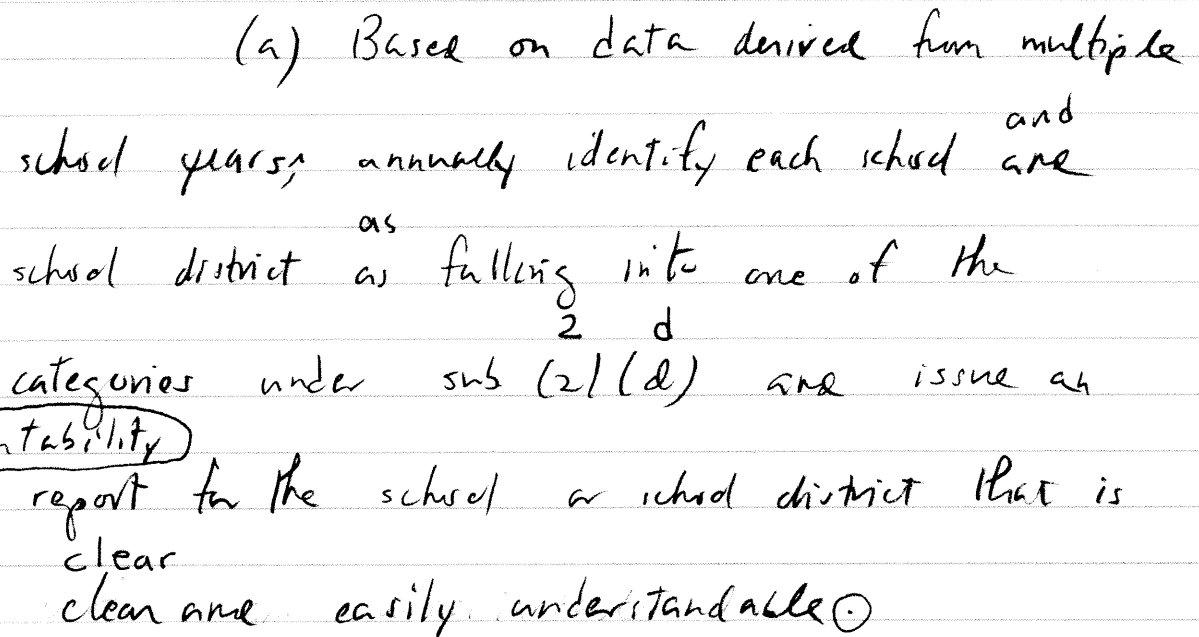 (a) Based on data derived from multiple
and
school years, annually identify each school and
as
school district as falling into one of the
2 d
categories under sub (2) (d) and issue an
ntability
report for the school or school district that is
clear
clear and easily understandable.